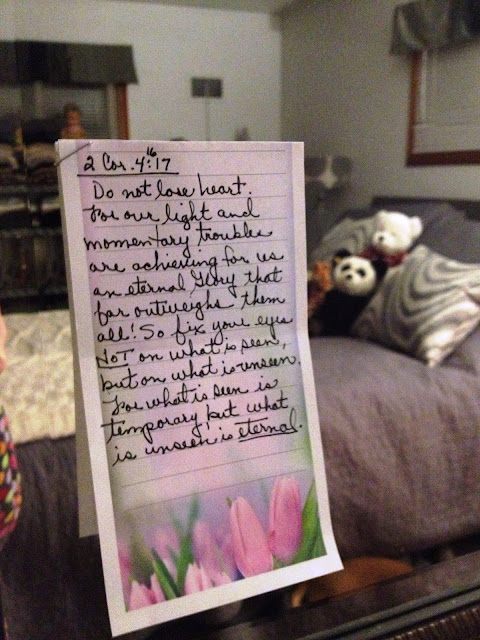 2 Cor. 4:16 17
Do not lose heart.
For our light and
momentary troubles
are achieving for us
an eternal Glory that
far outweighs them
all! So fix your eyes
NOT on what is seen,
but on what is unseen.
For what is seen is
temporary but what
is unseen is eternal.